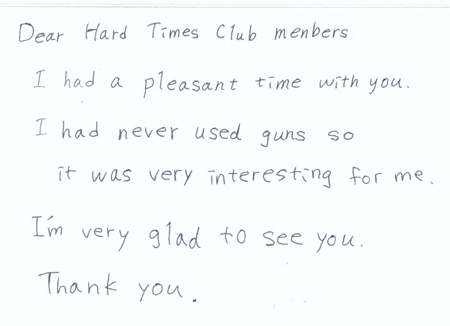 Dear Hard Times Club menbers
I had a pleasant time with you.
I had never used guns so
it was very interesting for me.
I'm very glad to see you.
Thank you.